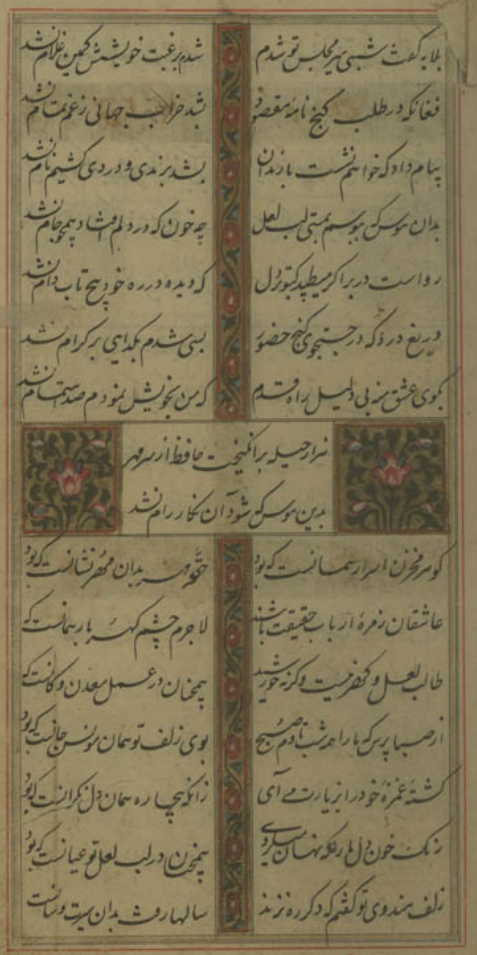 بلابه گفت شبی میر مجلس تو شدم شدم برغبت خویشش کمین غلام نشد
فغانکه در طلب گنج نامهٔ مقصود بشد خراب جهانی ز غم تمام نشد
پیام داد که خواهم نشست با رندان بشد برندی و دردی کشیم نام نشد
بدان هوس که ببوسم بمستی لب لعل چه خون که در دلم افتاد همچو جام نشد
رواست در بر اگر میطپد کبوتر دل که دیده در ره خود پیچ تاب دام نشد
دریغ درد که در جستجوی گنج حضور بسی شدم بگدایی بر کرام نشد
بکوی عشق منه بی دلیل راه قدم که من بخویش نمودم صد اهتمام نشد
هزار حیله برانگیخت حافظ از سر مهر
بدین هوس که شود آن نگار رام نشد
گوهر مخزن اسرار همانست که بود حقهٔ مهر بدان مهر نشانست که بود
عاشقان زمرهٔ ارباب حقیقت باشند لاجرم چشم گهربار همانست که
طالب لعل و گهر نیست وگرنه خورشید همچنان در عمل معدن و کانست که
از صبا پرس که ما را همه شب تا دم صبح بوی زلف تو همان مونس جانست که بود
کشتهٔ غمزهٔ خود را بزیارت می آی زانکه بیچاره همان دل نگرانست که بود
رنگ خون دل ما را که نهان میکردی همچنان در لب لعل تو عیانست که بود
زلف هندوی تو گفتم که دگر ره نزند سالها رفت بدان سیرت و سانست